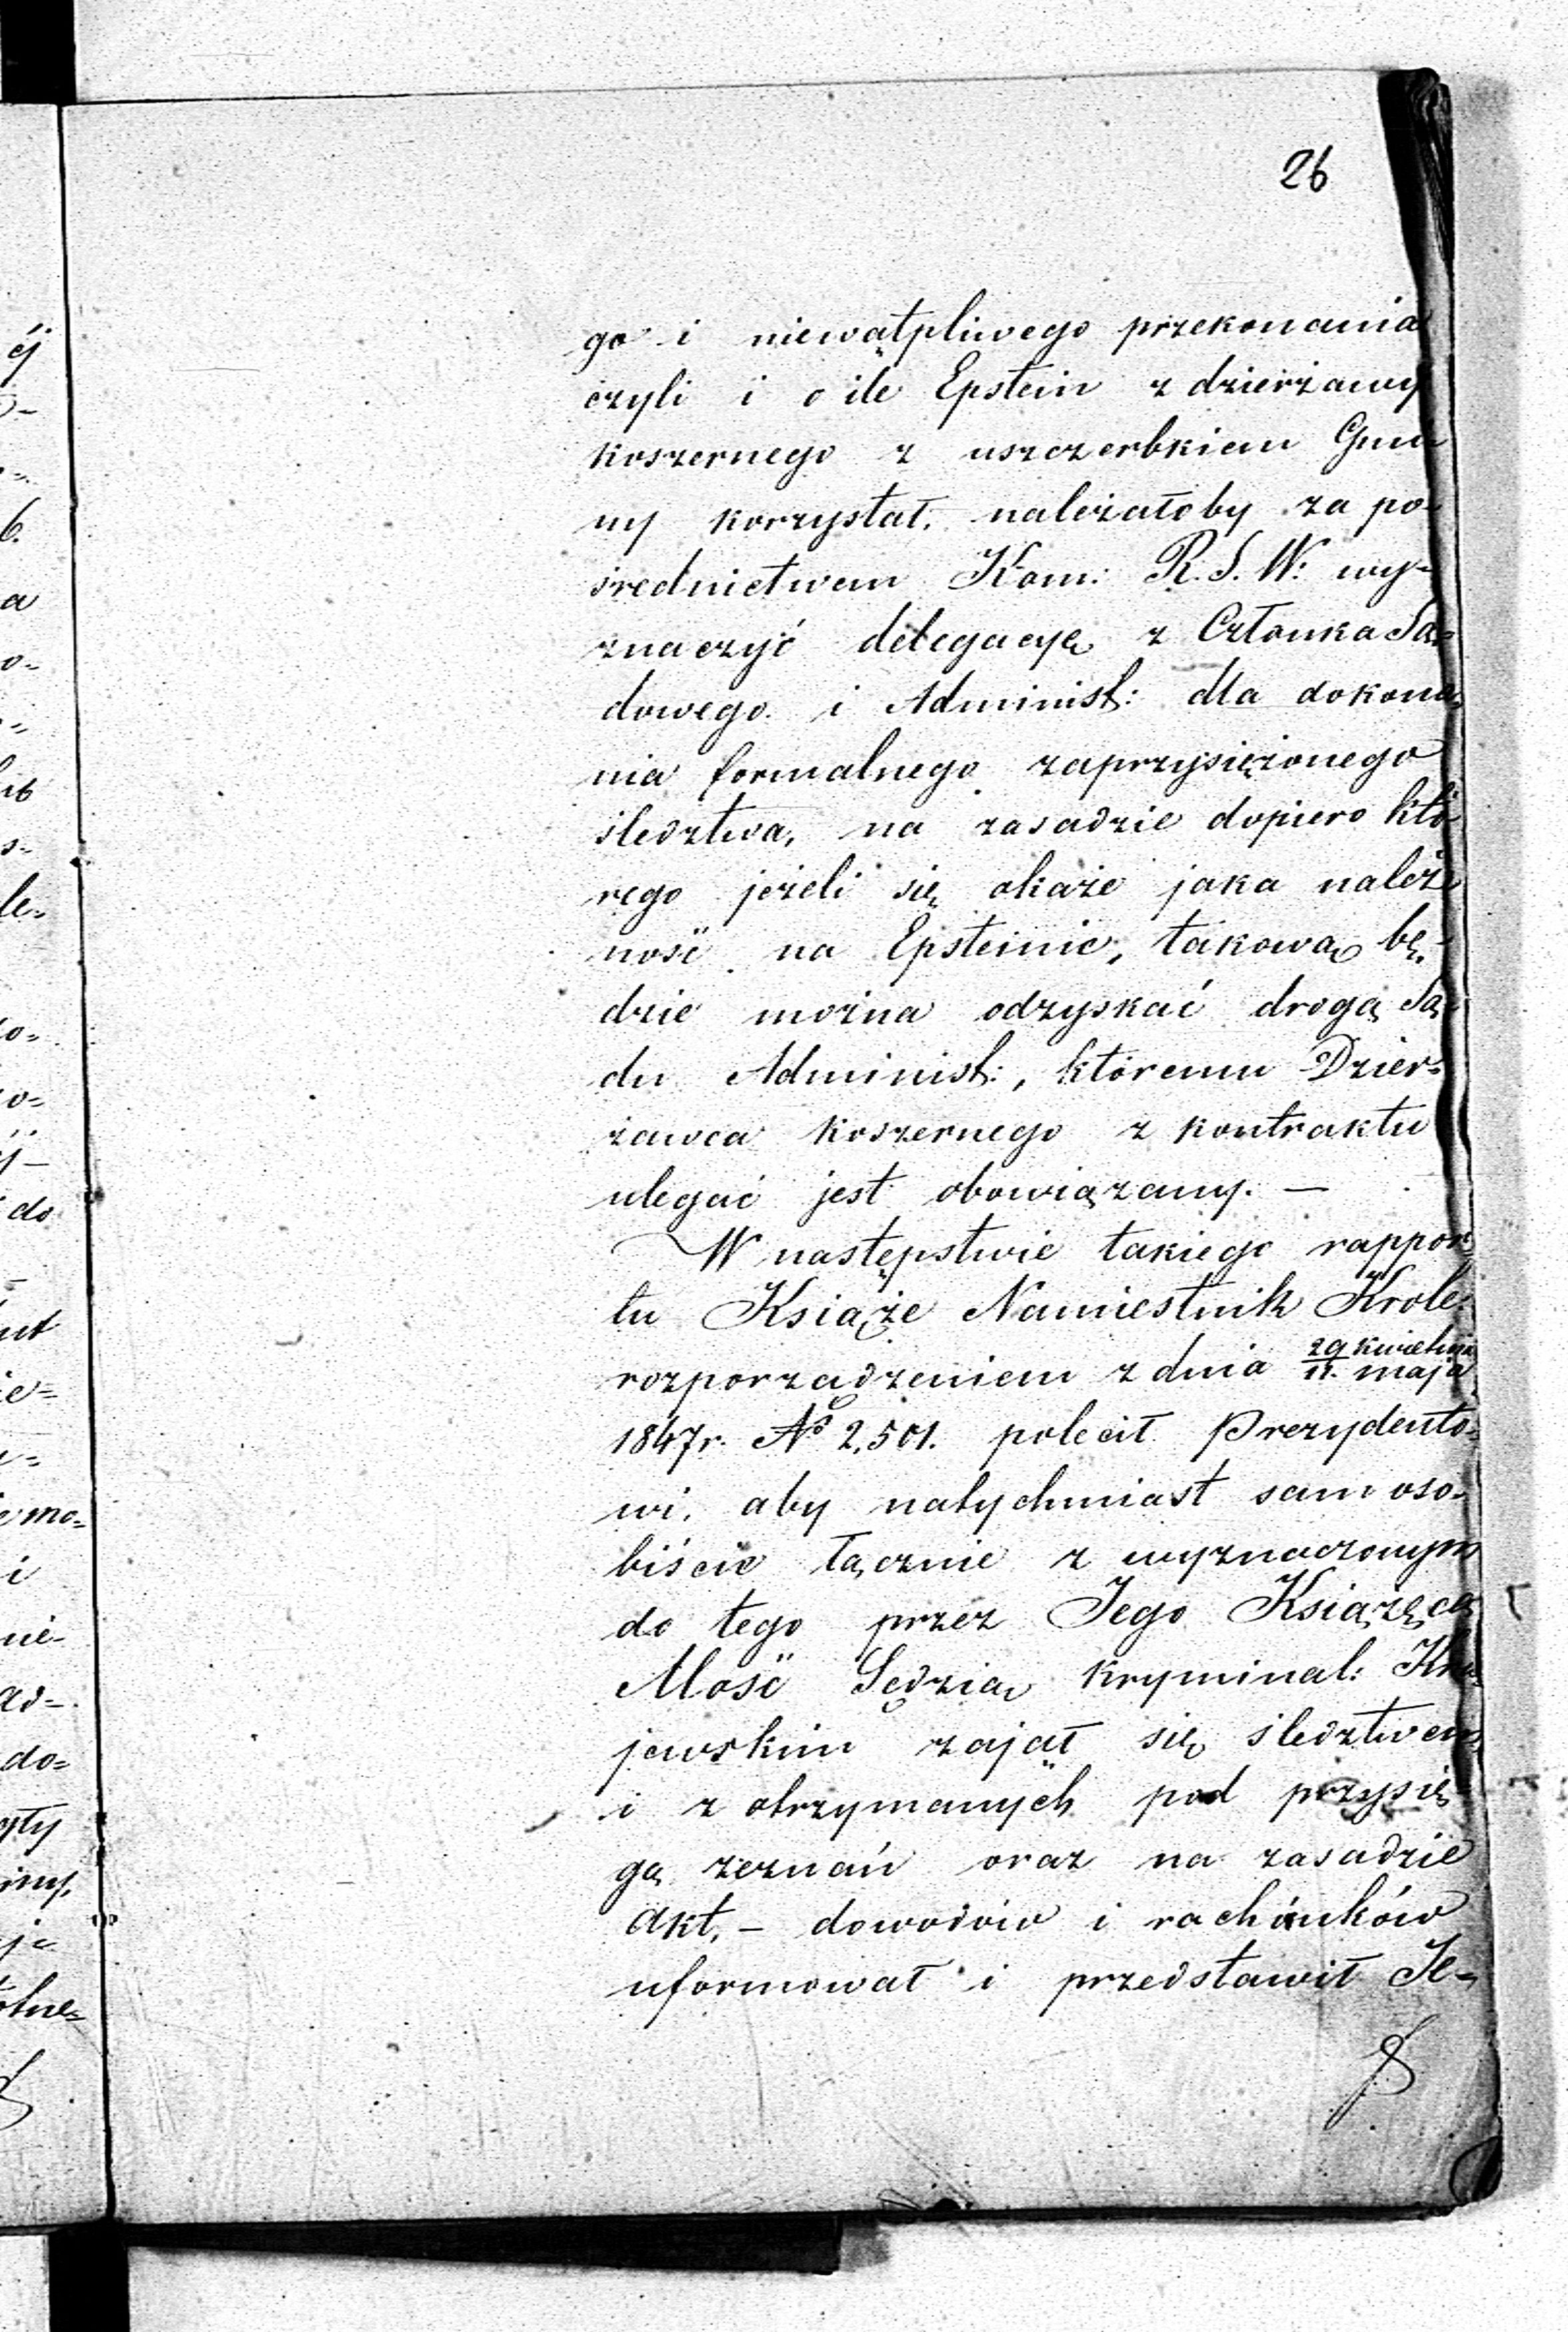 26
go i niewątpliwego przekonania
czyli i o ile Epstein z dzierżawy
koszernego z uszczerbkiem Gmi
ny korzystał, należałoby za po-
średnictwem Kom: R. S. W: wy-
znaczyć delegacyę z Członka Są-
dowego i Administ: dla dokona
nia formalnego zaprzysiężonego
śledztwa, na zasadzie dopiero któ
rego jeżeli się okaże jaka należ
ność na Epsteinie, takową bę-
dzie można odzyskać drogą Są-
du Administ:, któremu Dzier-
żawca koszernego z kontraktu
ulegać jest obowiązany. —
W następstwie takiego rappor
tu Książe Namiestnik Króle:
rozporządzeniem z dnia 29 kwietnia / 11. maja
1847 r. No 2,501. polecił Prezydento-
wi, aby natychmiast sam oso-
biście łącznie z wyznaczonym
do tego przez Jego Książęcą
Mość Sędzią kryminal:
jewskim zajął się śledztwem
i z otrzymanych pod przysię
gą zeznań oraz na zasadzie
akt, – dowodów i rachunków
uformował i przedstawił Je-